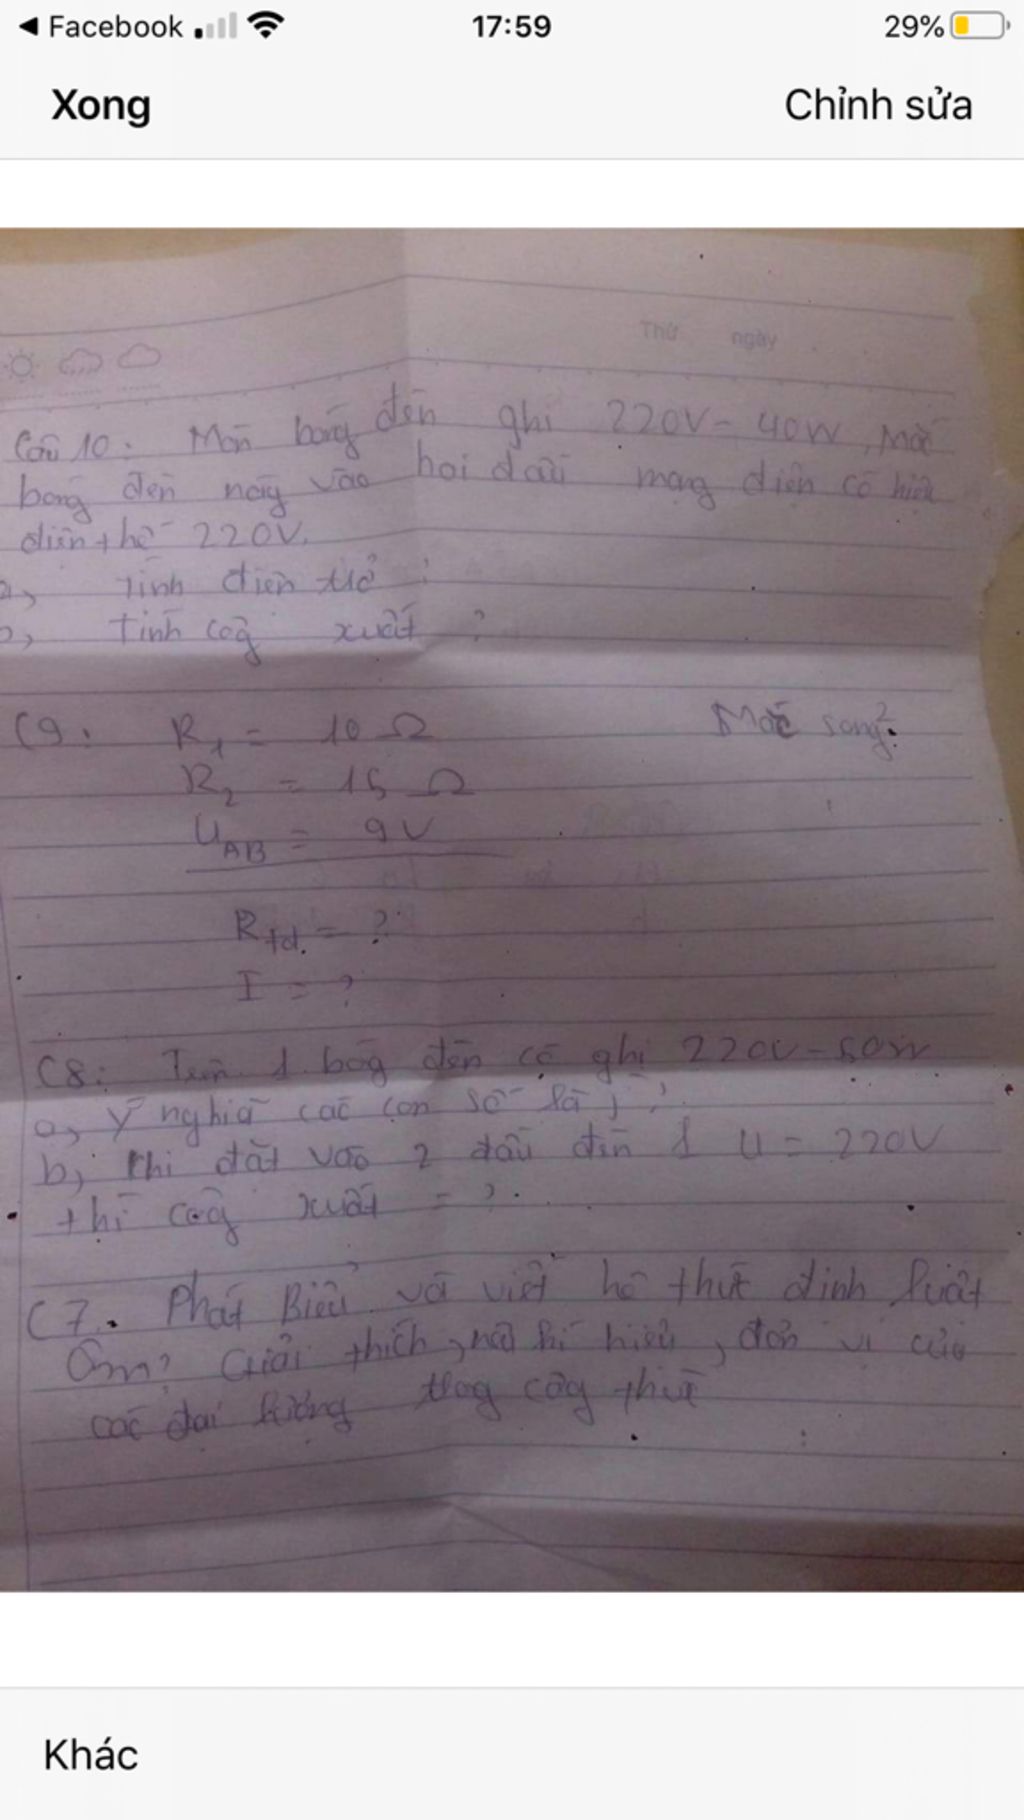 Facebook 17:59 29%
Xong Chỉnh sửa
Thứ ngày
Câu 10: Môn bóng đèn ghi 220V - 40W, Mắc
bong đèn nay vào hai đầu mạng điện có hiệu
điện thế 220V.
a, Tính điện trở :
b, tính côg xuất ?
C9: R1 = 10 Ω Mắc song2.
R2 = 15 Ω
UAB = 9V
Rtđ. = ?
I = ?
C8: Trên 1 bóg đèn có ghi 220V - 50W
a, Ý nghĩa các con số là j ?
b, Khi đặt vào 2 đầu đèn 1 U = 220V
thì côg xuất = ?.
C7. Phát Biểu và viết hệ thức định luật
Ôm? Giải thích, kí hiệu, đơn vị của
các đại lượng trog côg thức
Khác